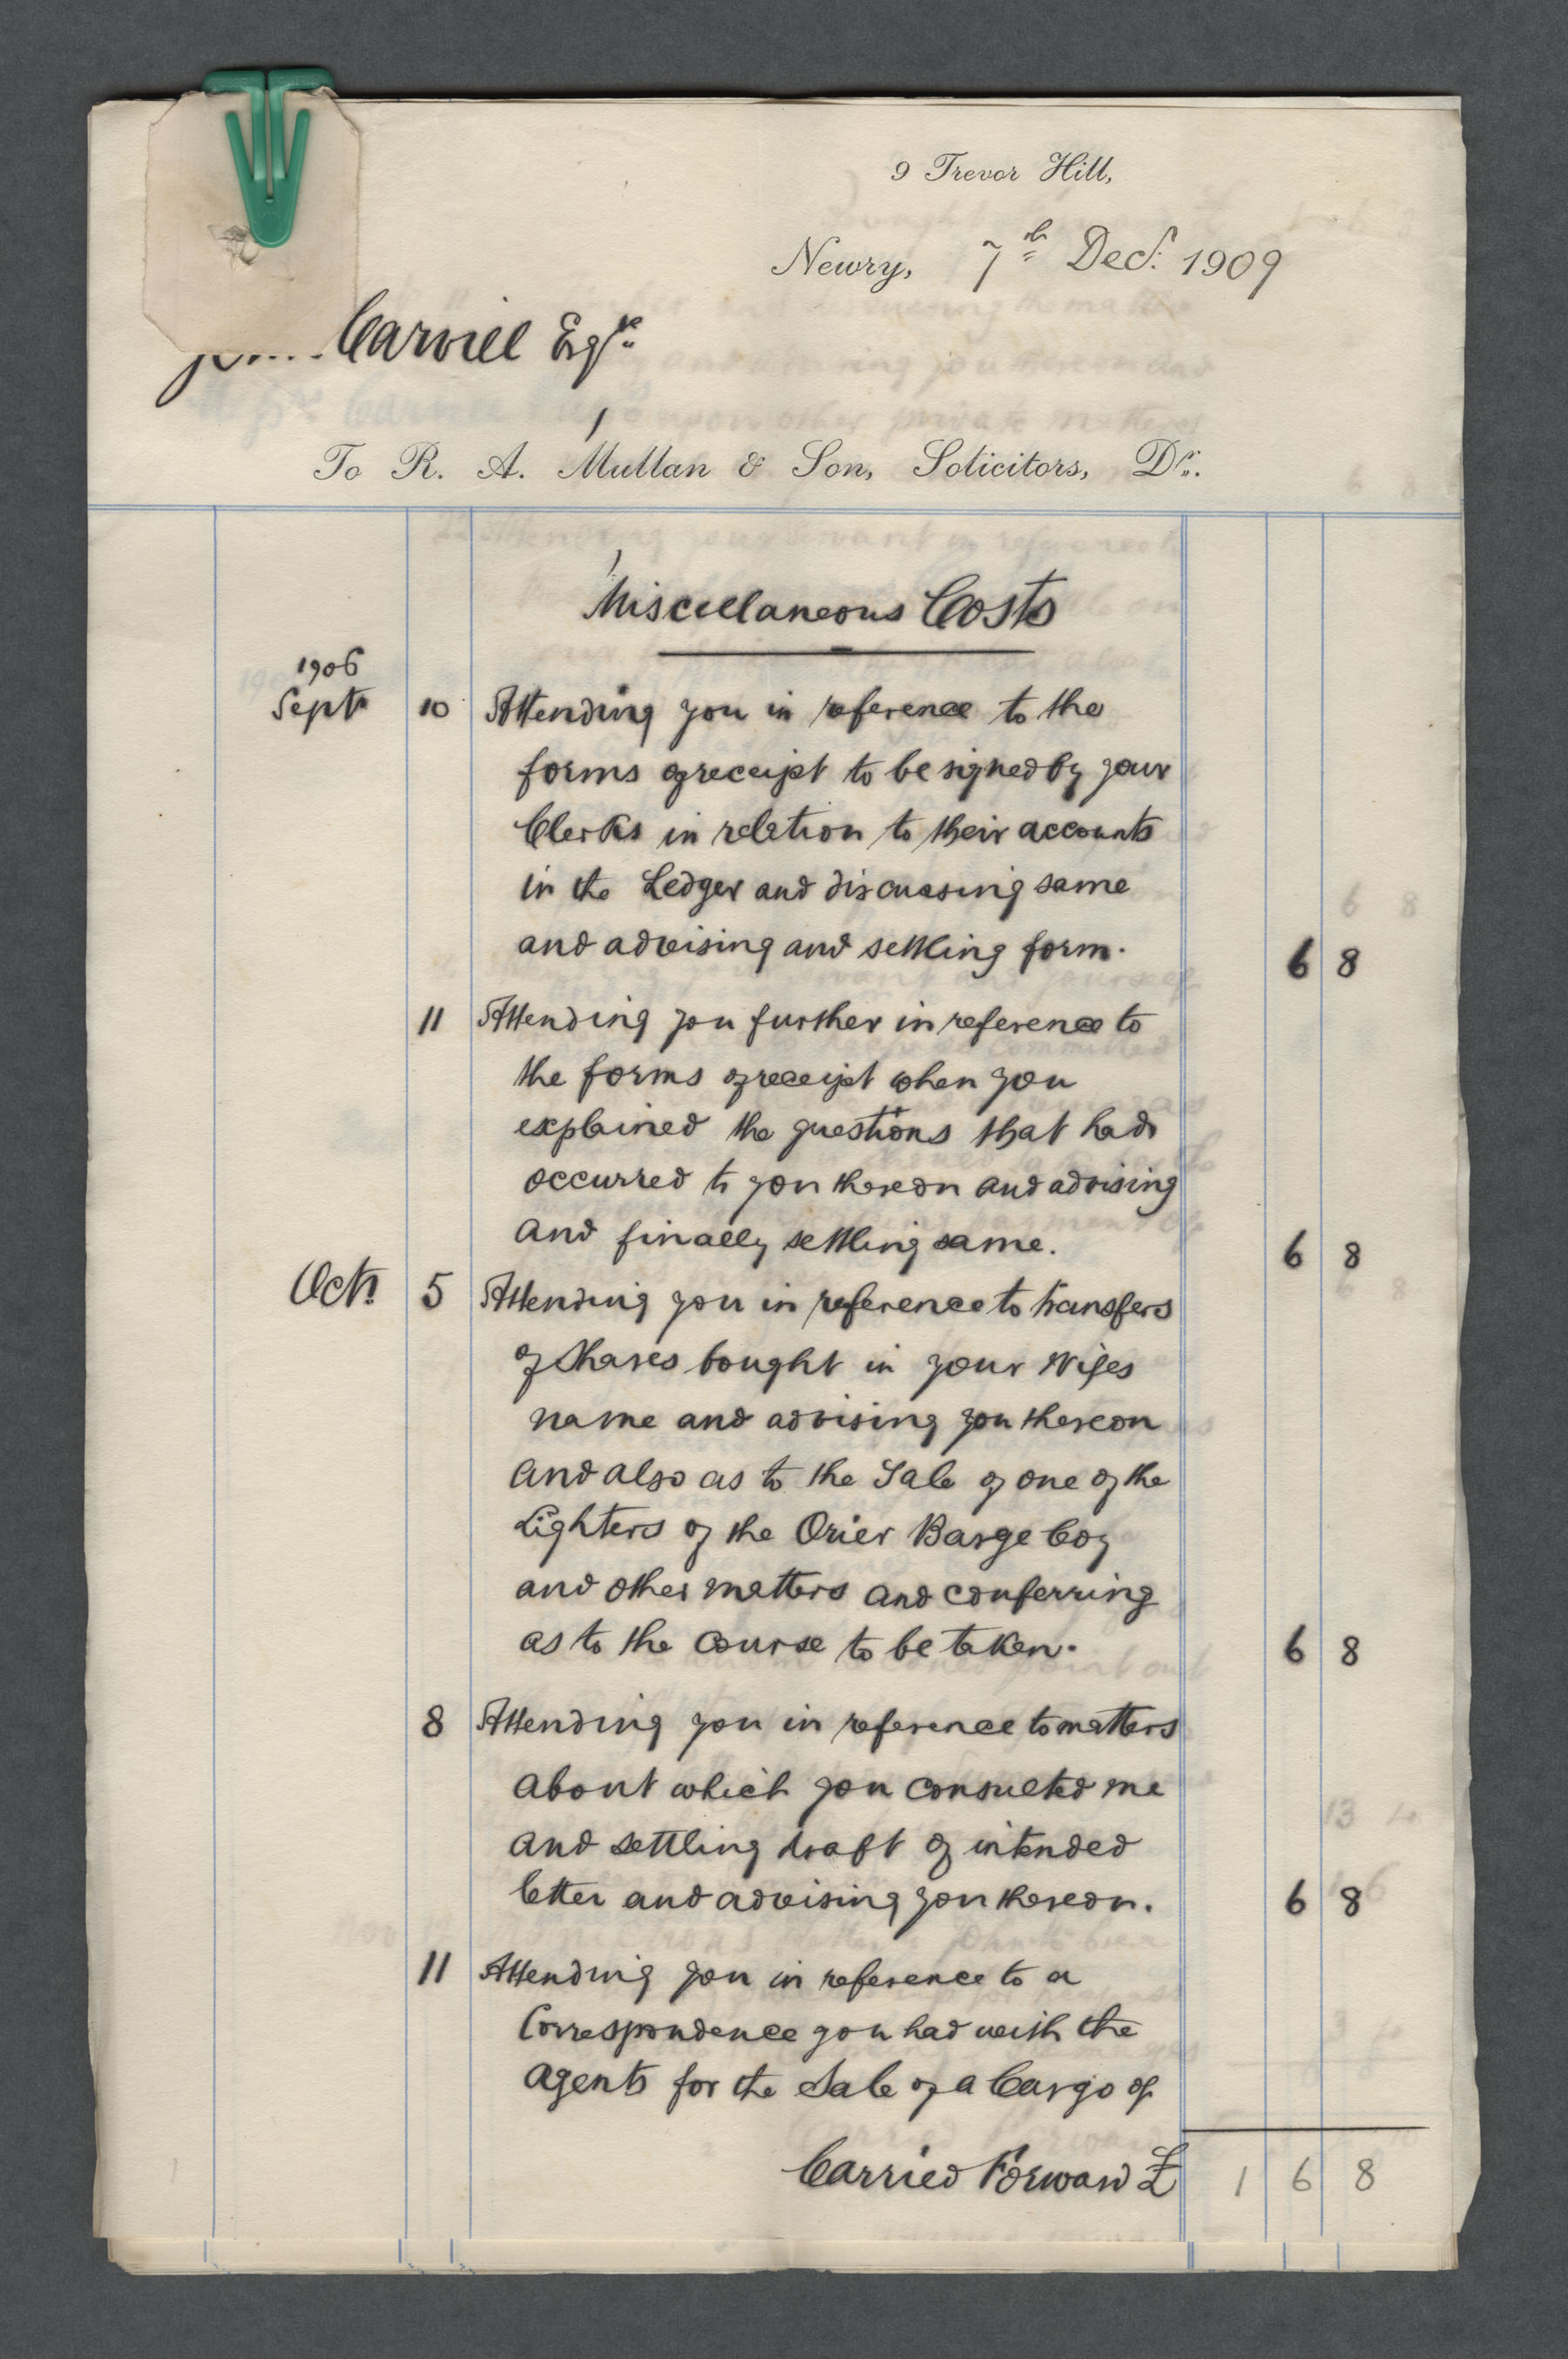 9 Trevor Hill,
Newry, 7th Decr. 1909
Carvill Esqre
To R. A. Mullan & Son, Solicitors, Dr.
Miscellaneous Costs
1906
Septr 10 Attending you in reference to the
forms of receipt to be signed by your
Clerks in relation to their accounts
in the Ledger and discussing same
and advising and settling form. 6 8
11 Attending you further in reference to
the forms of receipt when you
explained the questions that had
occurred to you thereon and advising
and finally settling same. 6 8
Octr 5 Attending you in reference to transfers
of Shares bought in your Wifes
name and advising you thereon
and also as to the Sale of one of the
Lighters of the Orier Barge Coy
and other matters and conferring
as to the course to be taken. 6 8
8 Attending you in reference to matters
about which you consulted me
and settling draft of intended
letter and advising you thereon. 6 8
11 Attending you in reference to a
Correspondence you had with the
agents for the Sale of a Cargo of
Carried Forward £ 1 6 8